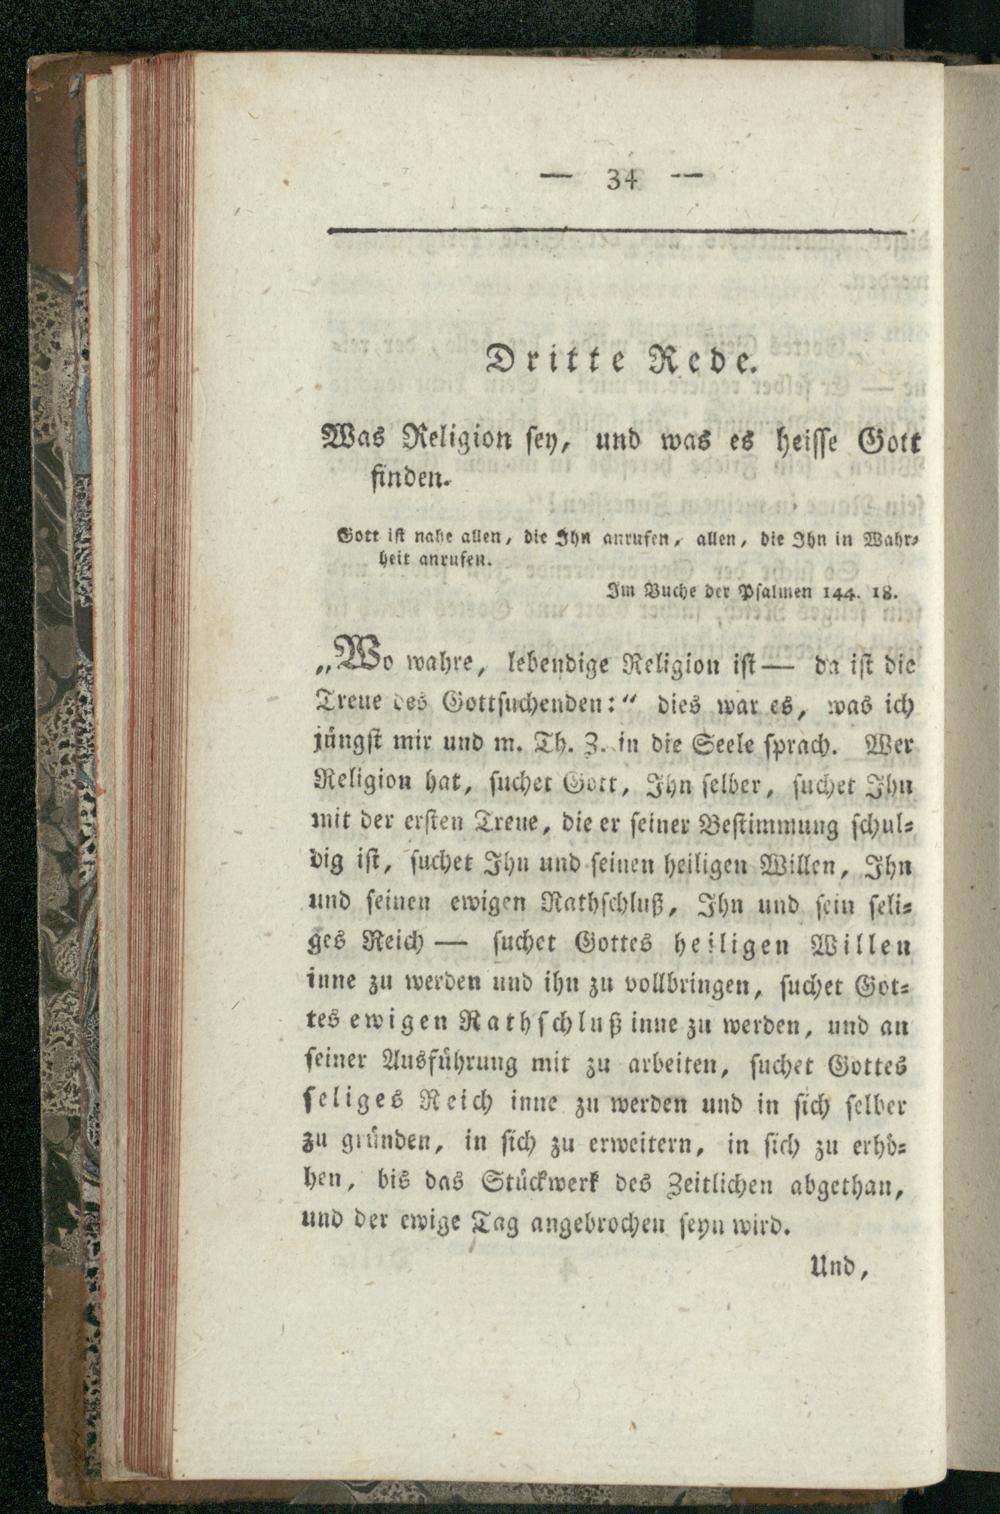 — 34 —
Dritte Rede.
Was Religion sey, und was es heisse Gott
finden.
Gott ist nahe allen, die Ihn anrufen, allen, die Ihn in Wahr-
heit anrufen.
Im Buche der Psalmen 144. 18.
„Wo wahre, lebendige Religion ist — da ist die
Treue des Gottsuchenden:“ dies war es, was ich
jüngst mir und m. Th. Z. in die Seele sprach. Wer
Religion hat, suchet Gott, Ihn selber, suchet Ihn
mit der ersten Treue, die er seiner Bestimmung schul-
dig ist, suchet Ihn und seinen heiligen Willen, Ihn
und seinen ewigen Rathschluß, Ihn und sein seli-
ges Reich — suchet Gottes heiligen Willen
inne zu werden und ihn zu vollbringen, suchet Got-
tes ewigen Rathschluß inne zu werden, und an
seiner Ausführung mit zu arbeiten, suchet Gottes
seliges Reich inne zu werden und in sich selber
zu gründen, in sich zu erweitern, in sich zu erhö-
hen, bis das Stückwerk des Zeitlichen abgethan,
und der ewige Tag angebrochen seyn wird.
Und,